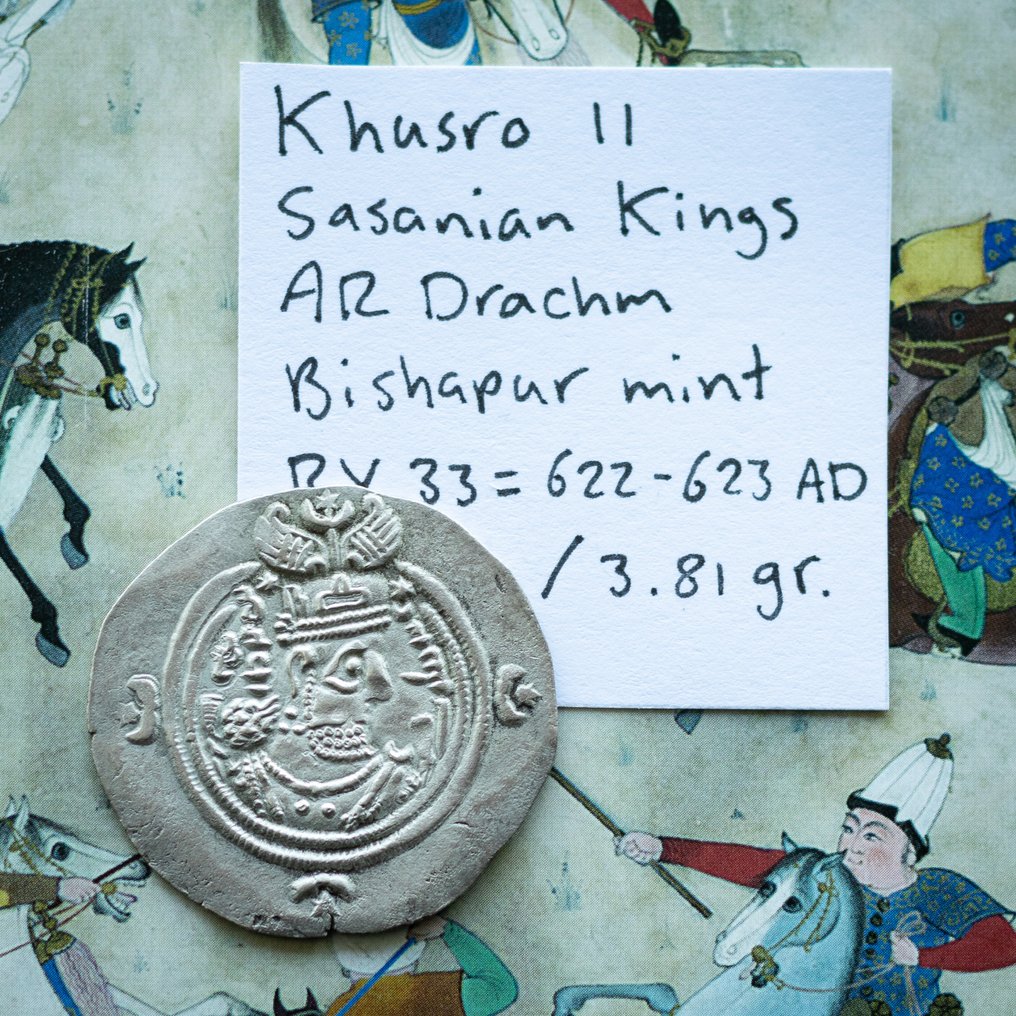 Khusro II
Sasanian Kings
AR Drachm
Bishapur mint
RY 33 = 622-623 AD
/ 3.81 gr.